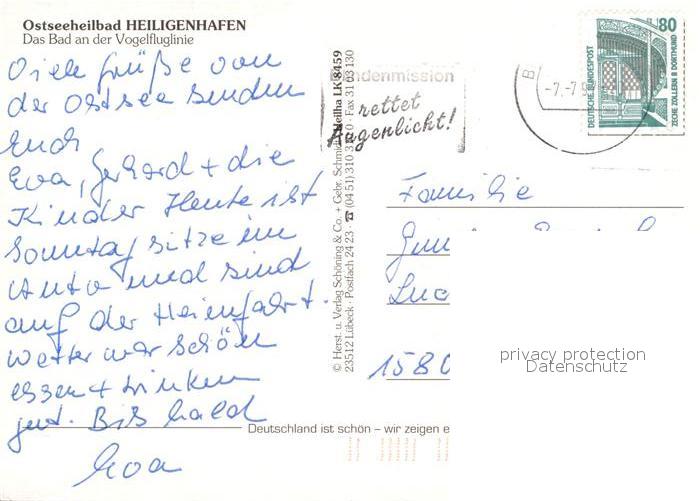 Ostseeheilbad HEILIGENHAFEN
Das Bad an der Vogelfluglinie
Viele Grüße von
der Ostsee senden
Euch
Eva, Gerhard + die
Kinder Heute ist
Sonntag sitze im
Auto und sind
auf der Heienfahrt.
Wetter war schön
essen + trinken
gut. Bis bald
Eva
Deutschland ist schön – wir zeigen e
© Herst. u. Verlag Schöning & Co. + Gebr. Schmidt
23512 Lübeck · Postfach 24 23 · ☎ (04 51) 310 3 0 · Fax 31 03 130
Heilha LK 8459
ndenmission
rettet
Augenlicht!
B
-7.-7.9
80
DEUTSCHE BUNDESPOST
ZECHE ZOLLERN II DORTMUND
Familie
1580
privacy protection
Datenschutz